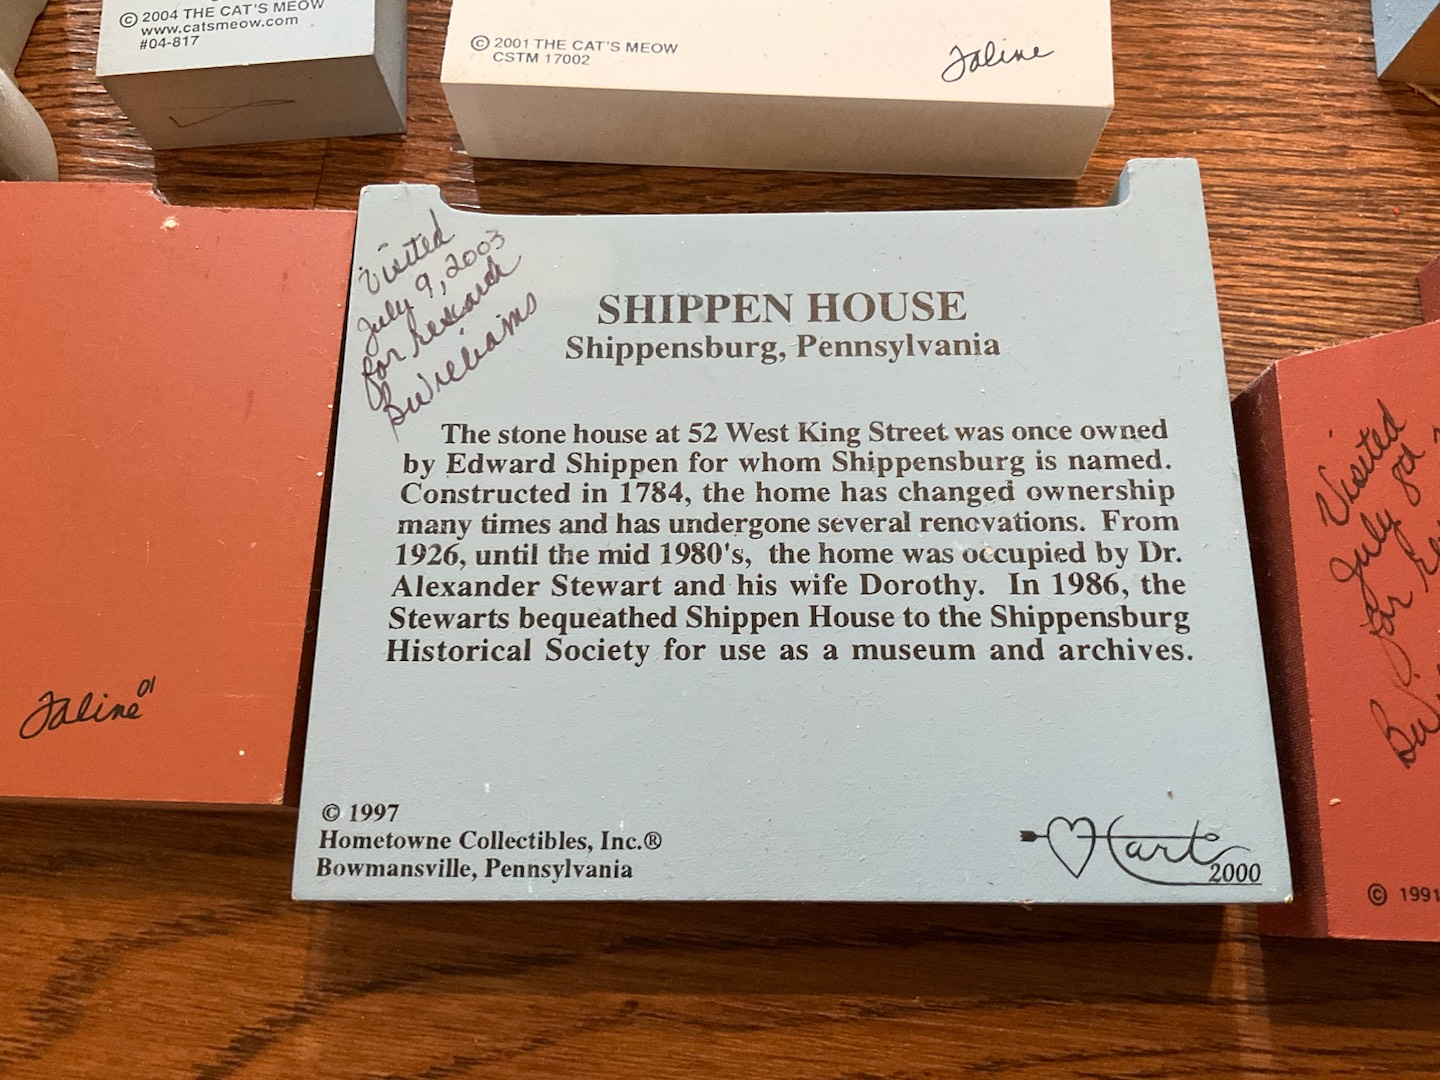 © 2004 THE CAT'S MEOW
www.catsmeow.com
#04-817
© 2001 THE CAT'S MEOW
CSTM 17002
Jaline
Visited
July 9, 2003
for research
BWilliams
SHIPPEN HOUSE
Shippensburg, Pennsylvania
The stone house at 52 West King Street was once owned
by Edward Shippen for whom Shippensburg is named.
Constructed in 1784, the home has changed ownership
many times and has undergone several renovations. From
1926, until the mid 1980's, the home was occupied by Dr.
Alexander Stewart and his wife Dorothy. In 1986, the
Stewarts bequeathed Shippen House to the Shippensburg
Historical Society for use as a museum and archives.
© 1997
Hometowne Collectibles, Inc.®
Bowmansville, Pennsylvania
Hart
2000
Jaline 01
Visited
July
for
© 1991